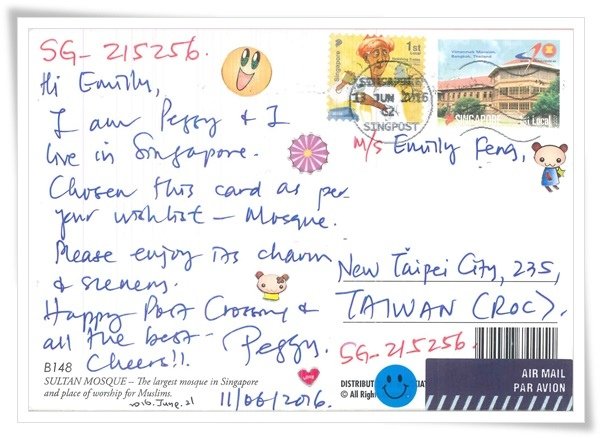 SG-215256.
Hi Emily,
I am Peggy & I
live in Singapore.
Chosen this card as per
your wishlist - Mosque.
Please enjoy its charm
& scenery.
Happy Post Crossing &
all the best-
Cheers!!. Peggy.
B148
SULTAN MOSQUE – The largest mosque in Singapore
and place of worship for Muslims.
2016.June.21
11/06/2016.
Singapore
1st
Local
Vimanmek Mansion,
Bangkok, Thailand
SINGAPORE
1st Local
SINGAPORE
13 JUN 2016
62
SINGPOST
M/s Emily Feng,
New Taipei City, 235,
TAIWAN (ROC).
SG-215256.
DISTRIBUT
© All Righ
AIR MAIL
PAR AVION